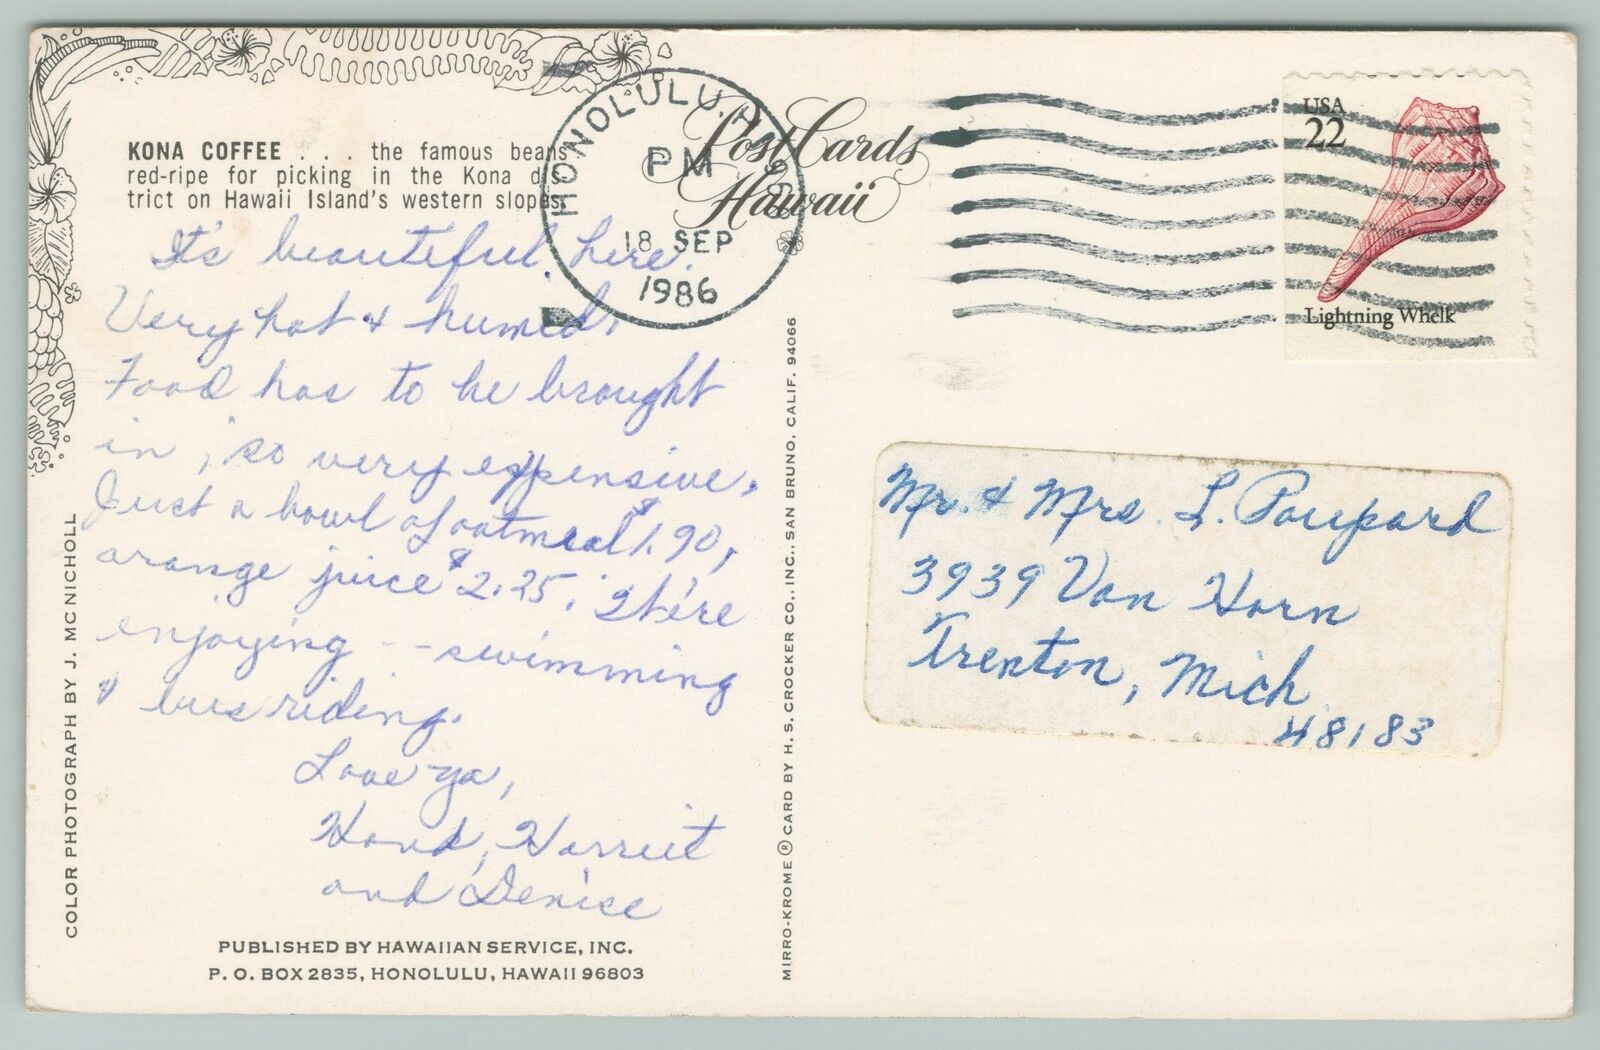 KONA COFFEE . . . the famous beans
red-ripe for picking in the Kona dis-
trict on Hawaii Island's western slopes.
It's beautiful here.
Very hot & humid.
Food has to be brought
in, so very expensive.
Just a bowl of oatmeal $1.90,
orange juice $2.25.
enjoying -- swimming
& bus riding.
Love ya,
Hank, Harriet
and Denise
PUBLISHED BY HAWAIIAN SERVICE, INC.
P. O. BOX 2835, HONOLULU, HAWAII 96803
COLOR PHOTOGRAPH BY J. MC NICHOLL
HONOLULU, H
PM
18 SEP
1986
Post Cards
Hawaii
MIRRO-KROME ® CARD BY H. S. CROCKER CO., INC., SAN BRUNO, CALIF. 94066
USA
22
Lightning Whelk
Mr. & Mrs. L. Poupard
3939 Van Horn
Trenton, Mich
48183